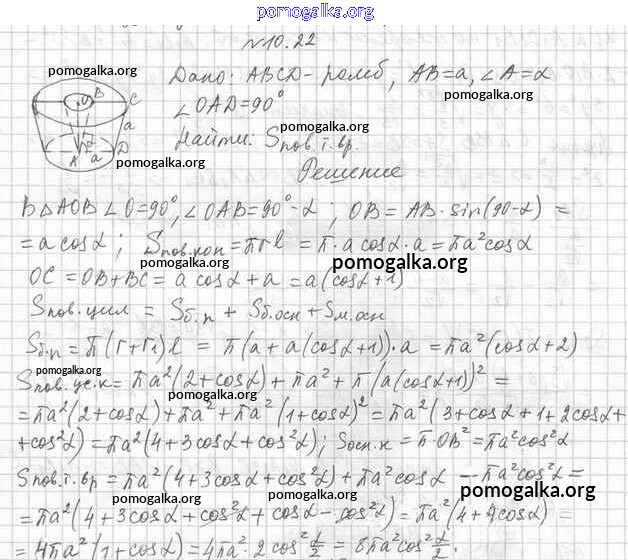 pomogalka.org
N10.22
pomogalka.org
Дано: ABCD - ромб, AB=a, ∠A=α
pomogalka.org
∠OAD=90°
Найти: Sпов.т.вр.
pomogalka.org
pomogalka.org
Решение
В △AOB ∠O=90°, ∠OAB=90°-α; OB = AB·sin(90-α) =
= a cosα; Sпов.кон = πrl = π·a cosα·a = πa²cosα
pomogalka.org
pomogalka.org
OC = OB+BC = a cosα + a = a(cosα+1)
Sпов.цил = Sб.п + Sб.осн + Sм.осн
Sб.п = π(r+r₁)l = π(a+a(cosα+1))·a = πa²(cosα+2)
pomogalka.org
Sпов.ус.к = πa²(2+cosα) + πa² + π(a(cosα+1))² =
= πa²(2+cosα) + πa² + πa²(1+cosα)² = πa²(3+cosα+1+2cosα+
+cos²α) = πa²(4+3cosα+cos²α); Sосн.к = π·OB² = πa²cos²α
Sпов.т.вр = πa²(4+3cosα+cos²α) + πa²cosα - πa²cos²α =
pomogalka.org
pomogalka.org
pomogalka.org
= πa²(4+3cosα+cos²α+cosα-cos²α) = πa²(4+4cosα) =
pomogalka.org
pomogalka.org
= 4πa²(1+cosα) = 4πa²·2cos²α/2 = 8πa²cos²α/2.